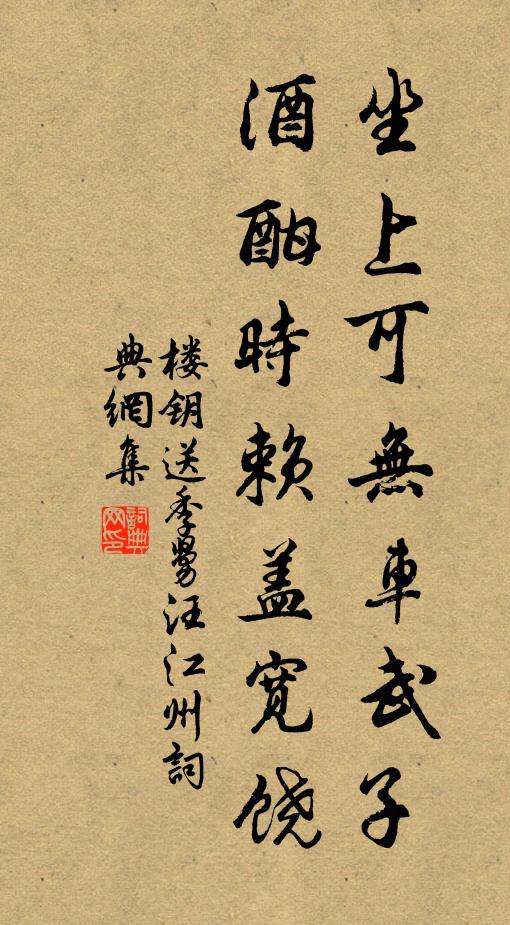 坐上可無車武子
酒酣時賴盖寬饶
楼钥送季舅汪江州詞
典網集
詞典網印